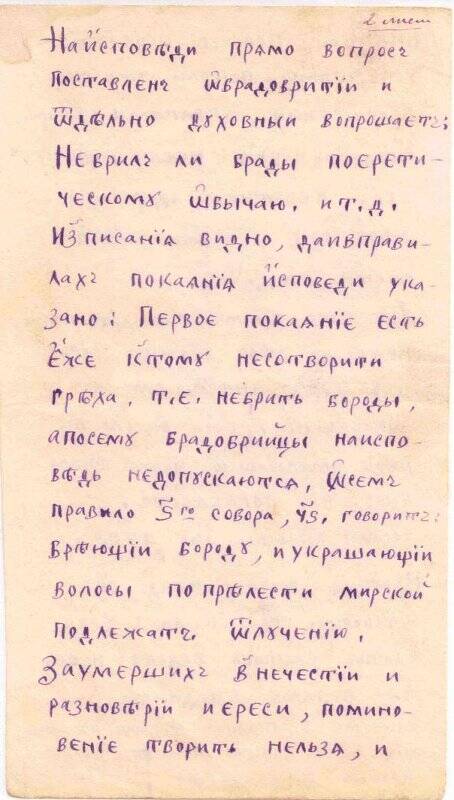 2 лист
На и҆споведи прямо вопросъ
поставленъ ѡ҆брадобритїи и
ѿдѣльно духовный вопрошаетъ:
Небрилъ ли брады поерети-
ческому ѡ҆бычаю. ит.д.
И҆з̾писанїя видно, даивправи-
лахъ покаянїя и҆споведи ука-
зано: Первое покаянїе есть
Еже ктому несотворити
грѣха, т.е. небрить бороды,
апосему брадобрийцы наиспо-
вѣдь недопускаются, ѡ҆семъ
правило ѕ҃го собора, ч҃ѕ. говоритъ:
Брѣющїи бороду, и украшающїи
волосы по прѣлести мирской
подлежатъ ѿлученїю.
Заумершихъ в̾нечестїи и
разновѣрїи иереси, помино-
венїе творить нельзя, и